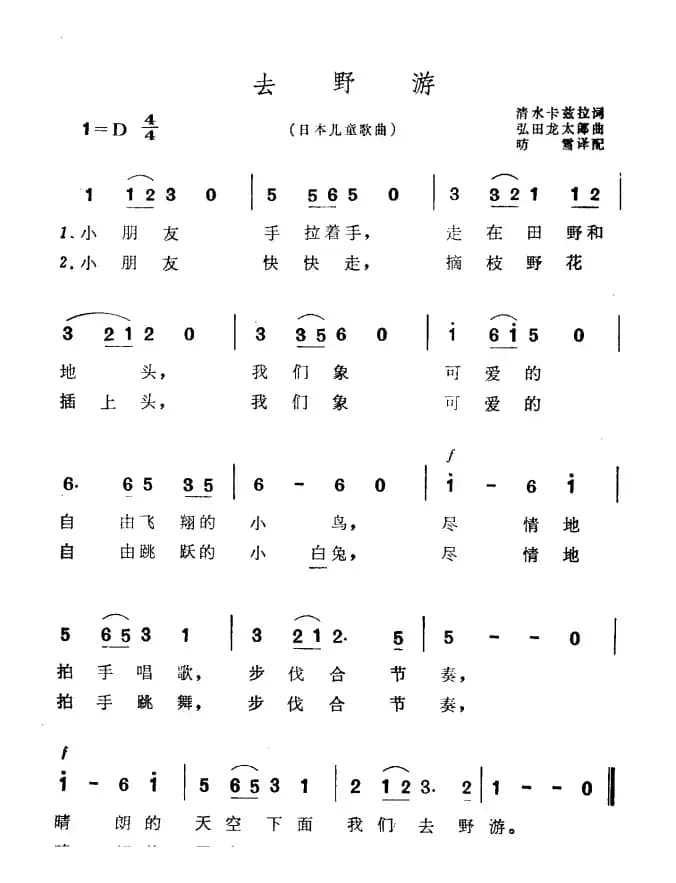 去 野 游
1=D 4/4
(日本儿童歌曲)
清水卡兹拉词
弘田龙太郎曲
昉 雪译配
1 1 2 3 0 | 5 5 6 5 0 | 3 3 2 1 1 2
1.小 朋 友 手 拉着手, 走 在 田 野和
2.小 朋 友 快 快走, 摘 枝 野 花
3 2 1 2 0 | 3 3 5 6 0 | i 6 i 5 0
地 头, 我 们 象 可 爱 的
插 上 头, 我 们 象 可 爱 的
f
6· 6 5 3 5 | 6 - 6 0 | i - 6 i
自 由飞 翔的 小 鸟, 尽 情 地
自 由跳 跃的 小 白兔, 尽 情 地
5 6 5 3 1 | 3 2 1 2· 5 | 5 - - 0
拍 手 唱 歌, 步 伐 合 节 奏,
拍 手 跳 舞, 步 伐 合 节 奏,
f
i - 6 i | 5 6 5 3 1 | 2 1 2 3· 2 | 1 - - 0
晴 朗的 天空 下 面 我 们 去 野 游。